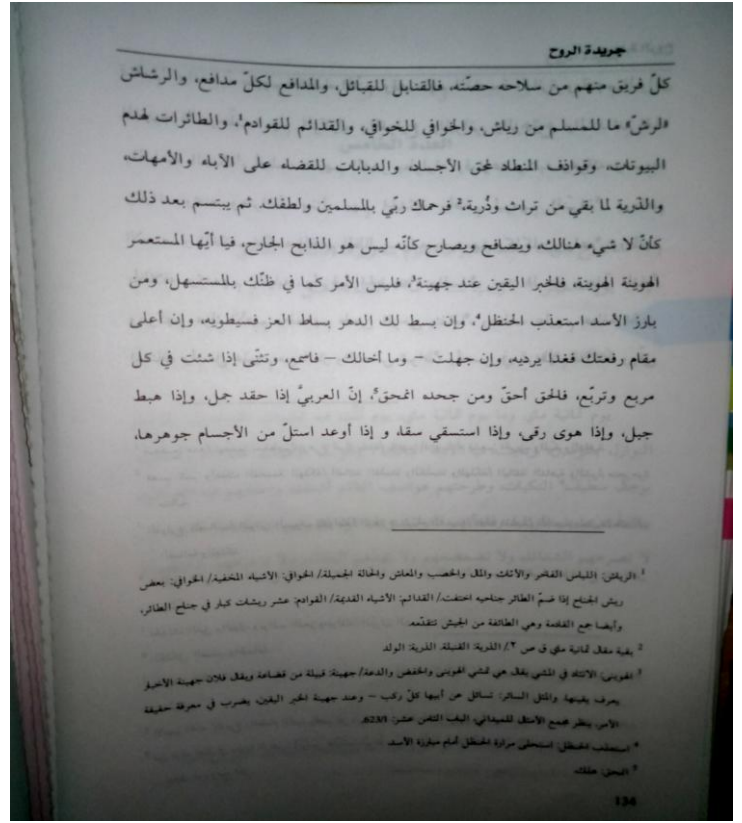 جريدة الروح
كلّ فريق منهم من سلاحه حصّته. فالقنابل للقبائل، والمدافع لكلّ مدافع، والرشاش
«لرشّ» ما للمسلم من رياش، والخوافي للخوافي، والقدائم للقوادم¹، والطائرات لهدم
البيوتات، وقواذف المنطاد لمحق الأجساد، والدبابات للقضاء على الآباء والأمهات،
والذّرية لما بقي من تراث وذُرية،² فرحماك ربّي بالمسلمين ولطفك. ثم يبتسم بعد ذلك
كأنّ لا شيء هنالك، ويصافح ويصارح كأنّه ليس هو الذابح الجارح، فيا أيّها المستعمر
الهوينة الهوينة، فالخبر اليقين عند جهينة³، فليس الأمر كما في ظنّك بالمستسهل، ومن
بارز الأسد استعذب الحنظل⁴، وإن بسط لك الدهر بساط العز فسيطويه، وإن أعلى
مقام رفعتك فغدا يرديه، وإن جهلت – وما أخالك – فاسمع، وتثنّى إذا شئت في كل
مربع وتربّع، فالحق أحقّ ومن جحده انمحق⁵، إنّ العربيّ إذا حقد جمل، وإذا هبط
جبل، وإذا هوى رقى، وإذا استسقي سقا، و إذا أوعد استلّ من الأجسام جوهرها،
¹ الرياش: اللباس الفاخر والأثاث والمال والخصب والمعاش والحالة الجميلة/ الخوافي: الأشياء المخفية/ الخوافي: بعض
ريش الجناح إذا ضمّ الطائر جناحيه اختفت/ القدائم: الأشياء القديمة/ القوادم: عشر ريشات كبار في جناح الطائر،
وأيضا جمع القادمة وهي الطائفة من الجيش تتقدّمه.
² بقية مقال ثمانية ماي ق ص ٢/ الذرية: القنبلة. الذرية: الولد
³ الهوينى: الاتئاد في المشي يقال هي تمشي الهوينى والخفض والدعة/ جهينة: قبيلة من قضاعة ويقال فلان جهينة الأخبار
يعرف يقينها. والمثل السائر: تسائل عن أبيها كلّ ركب – وعند جهينة الخبر اليقين، يضرب في معرفة حقيقة
الأمر، ينظر مجمع الأمثال للميداني، الباب الثامن عشر: 623/1.
⁴ استعذب الحنظل: استحلى مرارة الحنظل أمام مبارزة الأسد.
⁵ انمحق: هلك.
134